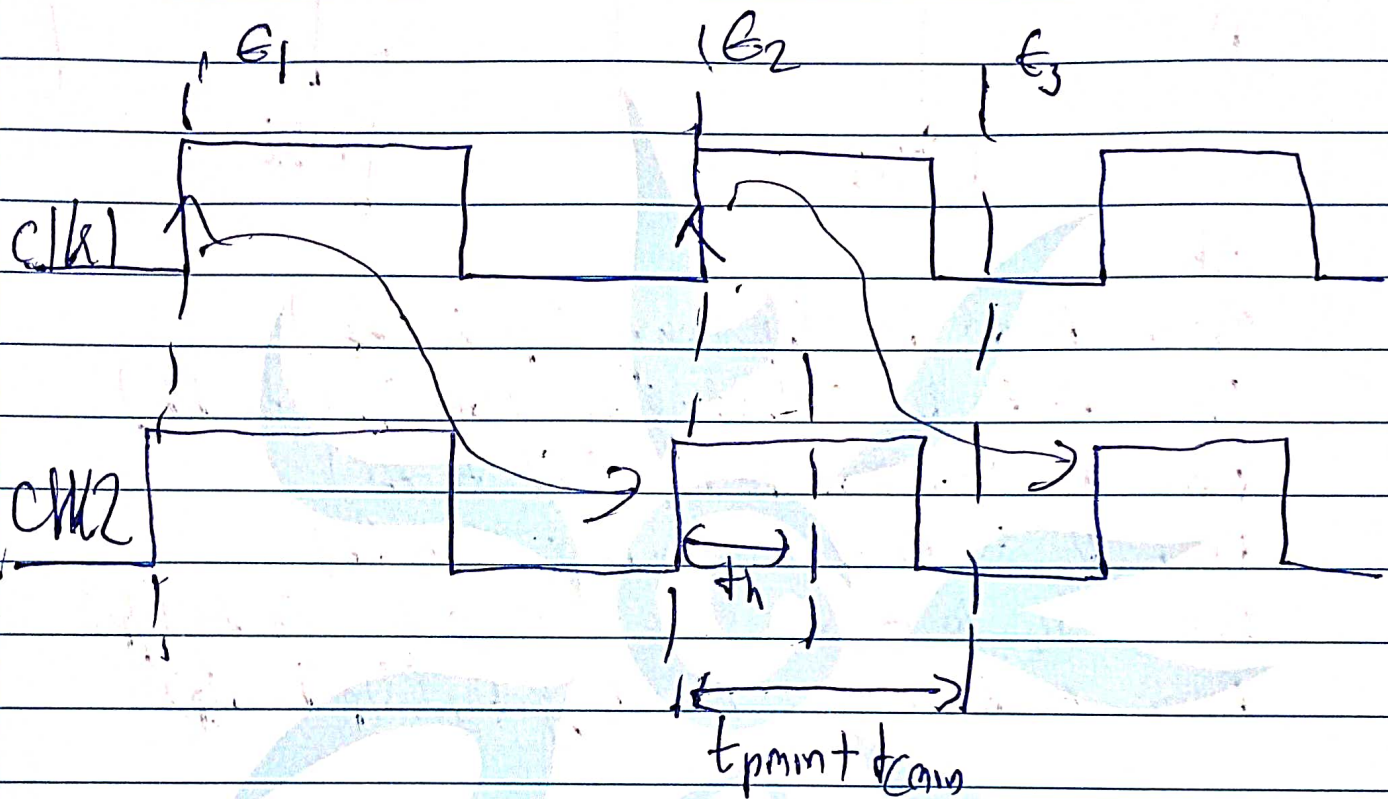 t1 t2 t3
clk1
clk2
th
tpmin + tcmin